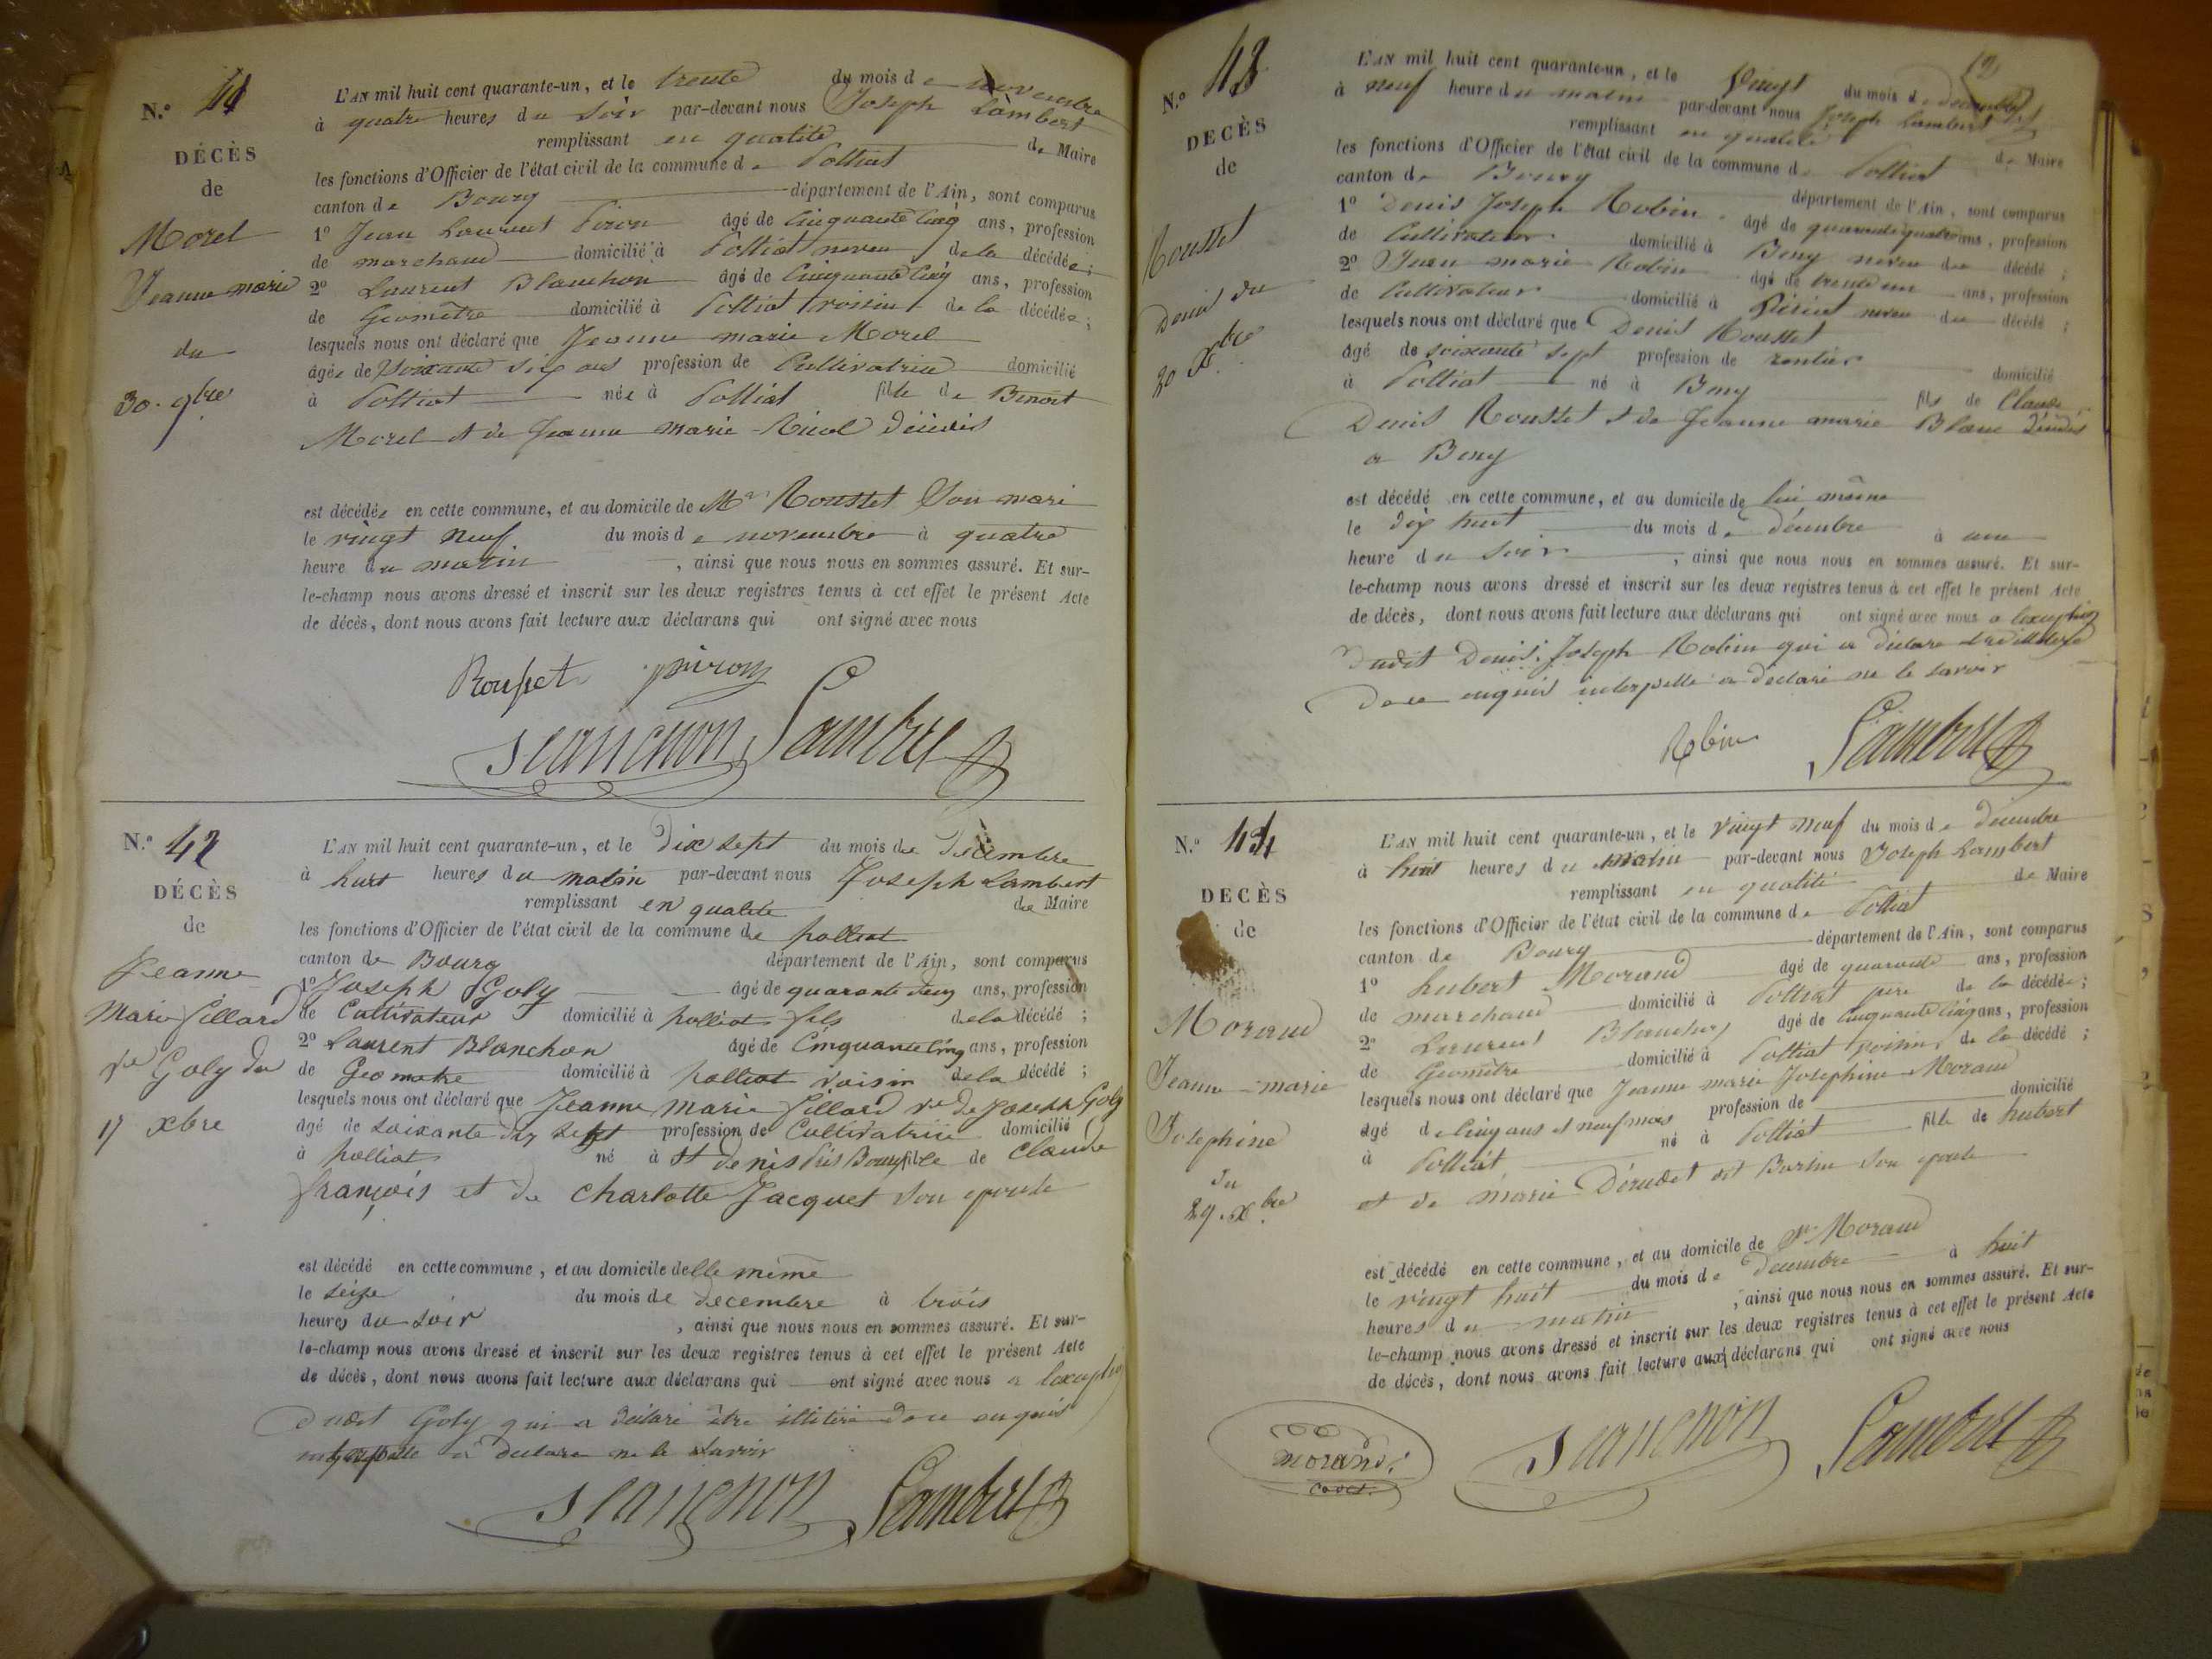 N.º 41
DÉCÈS
de
Morel
Jeanne marie
du
30. 9bre
L'AN mil huit cent quarante-un, et le trente du mois de novembre
à quatre heures du soir par-devant nous Joseph Lambert
remplissant en qualité de Maire
les fonctions d'Officier de l'état civil de la commune de Polliat
canton de Bourg département de l'Ain, sont comparus
1º Jean Laurent Piron âgé de Cinquante Cinq ans, profession
de marchand domicilié à Polliat neveu de la décédée;
2º Laurent Blanchon âgé de Cinquante Cinq ans, profession
de Geomètre domicilié à Polliat voisin de la décédée;
lesquels nous ont déclaré que Jeanne marie Morel
âgée de Soixante Six ans profession de Cultivatrice domicilié
à Polliat née à Polliat fille de Benoit
Morel et de Jeanne marie Nicol décédés
est décédée en cette commune, et au domicile de Mr Rousset Son mari
le vingt neuf du mois de novembre à quatre
heure du matin, ainsi que nous nous en sommes assuré. Et sur-
le-champ nous avons dressé et inscrit sur les deux registres tenus à cet effet le présent Acte
de décès, dont nous avons fait lecture aux déclarans qui ont signé avec nous
Rousset piron
Blanchon Lambert
N.º 42
DÉCÈS
de
Jeanne
Marie Sillard
ve Goly du
17 xbre
L'AN mil huit cent quarante-un, et le Dix sept du mois de Décembre
à huit heures du matin par-devant nous Joseph Lambert
remplissant en qualité de Maire
les fonctions d'Officier de l'état civil de la commune de polliat
canton de Bourg département de l'Ain, sont comparus
1º Joseph Goly âgé de quarante deux ans, profession
de Cultivateur domicilié à polliat fils de la décédé;
2º Laurent Blanchon âgé de Cinquante Cinq ans, profession
de Geometre domicilié à polliat voisin de la décédé;
lesquels nous ont déclaré que Jeanne Marie Sillard ve de Joseph Goly
âgé de soixante dix sept profession de Cultivatrice domicilié
à polliat né à St denis Près Bourg fille de Claude
françois et de Charlotte Jacquet son epouse
est décédé en cette commune, et au domicile delle même
le seize du mois de decembre à trois
heures du soir, ainsi que nous nous en sommes assuré. Et sur-
le-champ nous avons dressé et inscrit sur les deux registres tenus à cet effet le présent Acte
de décès, dont nous avons fait lecture aux déclarans qui ont signé avec nous a lexception
dudit Goly qui a déclaré être illitéré de ce enquis
interpellé a déclaré ne le savoir
Blanchon Lambert
12
N.º 43
DÉCÈS
de
Rousset
Denis du
20 Xbre
L'AN mil huit cent quarante-un, et le Vingt du mois de decembre
à neuf heure du matin par-devant nous Joseph Lambert
remplissant en qualité de Maire
les fonctions d'Officier de l'état civil de la commune de Polliat
canton de Bourg département de l'Ain, sont comparus
1º Denis Joseph Robin âgé de quarante quatre ans, profession
de Cultivateur domicilié à Beny neveu du décédé;
2º Jean marie Robin âgé de trente un ans, profession
de Cultivateur domicilié à neveu du décédé;
lesquels nous ont déclaré que Denis Rousset
âgé de soixante sept profession de rentier domicilié
à Polliat né à Beny fils de Claude
Denis Rousset et de Jeanne marie Blanc décédés
a Beny
est décédé en cette commune, et au domicile de lui même
le dix huit du mois de décembre à une
heure du soir, ainsi que nous nous en sommes assuré. Et sur-
le-champ nous avons dressé et inscrit sur les deux registres tenus à cet effet le présent Acte
de décès, dont nous avons fait lecture aux déclarans qui ont signé avec nous a lexception
dudit Denis Joseph Robin qui a déclaré
de ce enquis interpellé a déclaré ne le savoir
Robin Lambert
N.º 44
DECÈS
de
Morand
Jeanne-marie
Josephine
du
29. Xbre
L'AN mil huit cent quarante-un, et le Vingt neuf du mois de décembre
à huit heures du matin par-devant nous Joseph Lambert
remplissant en qualité de Maire
les fonctions d'Officier de l'état civil de la commune de Polliat
canton de Bourg département de l'Ain, sont comparus
1º hubert Morand âgé de quarante ans, profession
de marchand domicilié à Polliat père de la décédée;
2º Laurent Blanchon âgé de Cinquante Cinq ans, profession
de Geomètre domicilié à Polliat voisin de la décédé;
lesquels nous ont déclaré que Jeanne marie Josephine Morand
âgé de Cinq ans et neuf mois profession de domicilié
à Polliat né à Polliat fille de hubert
et de marie Dérudet dit Burlin son epouse
est décédé en cette commune, et au domicile de Sr Morand
le vingt huit du mois de décembre à huit
heures du matin, ainsi que nous nous en sommes assuré. Et sur-
le-champ nous avons dressé et inscrit sur les deux registres tenus à cet effet le présent Acte
de décès, dont nous avons fait lecture aux déclarans qui ont signé avec nous
morand Blanchon Lambert